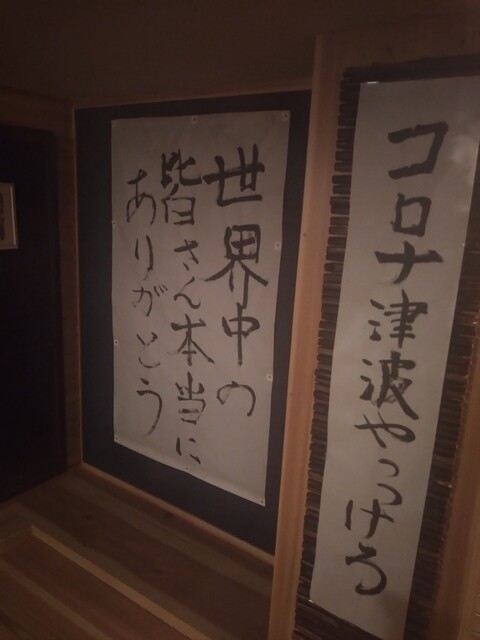 コロナ津波やっつける
世界中の
皆さん本当に
ありがとう